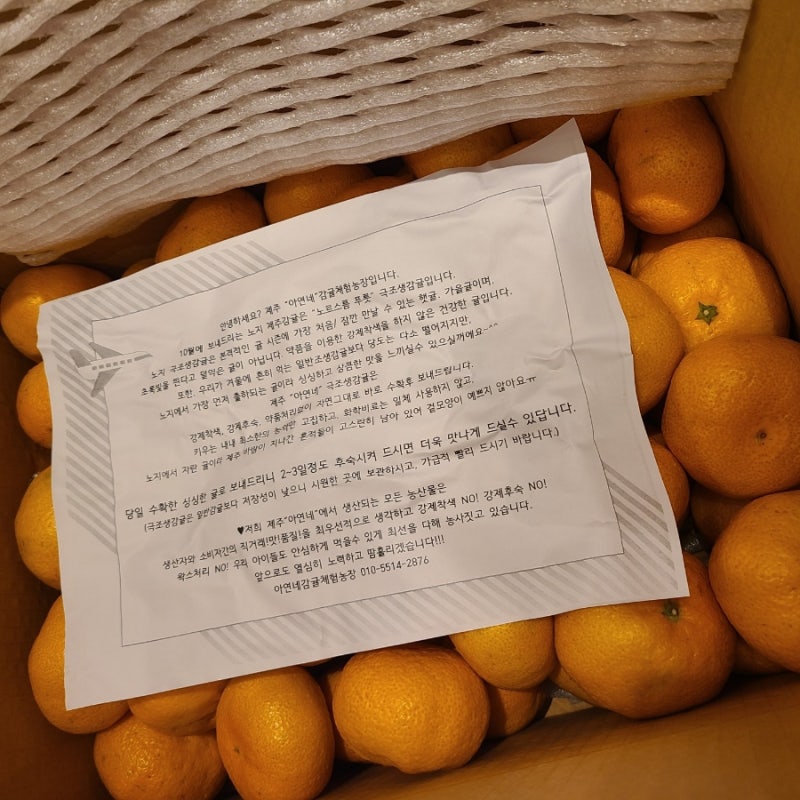 안녕하세요? 제주 "아연네"감귤체험농장입니다.
10월에 보내드리는 노지 제주감귤은 "노르스름 푸릇" 극조생감귤입니다.
노지 극조생감귤은 본격적인 귤 시즌에 가장 처음/ 잠깐 만날 수 있는 햇귤, 가을귤이며,
초록빛을 띈다고 덜익은 귤이 아닙니다. 약품을 이용한 강제착색을 하지 않은 건강한 귤입니다.
또한, 우리가 겨울에 흔히 먹는 일반조생감귤보다 당도는 다소 떨어지지만,
노지에서 가장 먼저 출하되는 귤이라 싱싱하고 상큼한 맛을 느끼실수 있으실꺼에요~^^
제주 "아연네" 극조생감귤은
강제착색, 강제후숙, 약품처리없이 자연그대로 바로 수확후 보내드립니다.
키우는 내내 최소한의 농약만 고집하고, 화학비료는 일체 사용하지 않고,
노지에서 자란 귤이라 제주 바람이 지나간 흔적들이 고스란히 남아 있어 겉모양이 예쁘지 않아요ㅠ
당일 수확한 싱싱한 귤로 보내드리니 2~3일정도 후숙시켜 드시면 더욱 맛나게 드실수 있답니다.
(극조생감귤은 일반감귤보다 저장성이 낮으니 시원한 곳에 보관하시고, 가급적 빨리 드시기 바랍니다.)
♥저희 제주"아연네"에서 생산되는 모든 농산물은
생산자와 소비자간의 직거래!맛!품질!을 최우선적으로 생각하고 강제착색 NO! 강제후숙 NO!
왁스처리 NO! 우리 아이들도 안심하게 먹을수 있게 최선을 다해 농사짓고 있습니다.
앞으로도 열심히 노력하고 땀흘리겠습니다!!!
아연네감귤체험농장 010-5514-2876